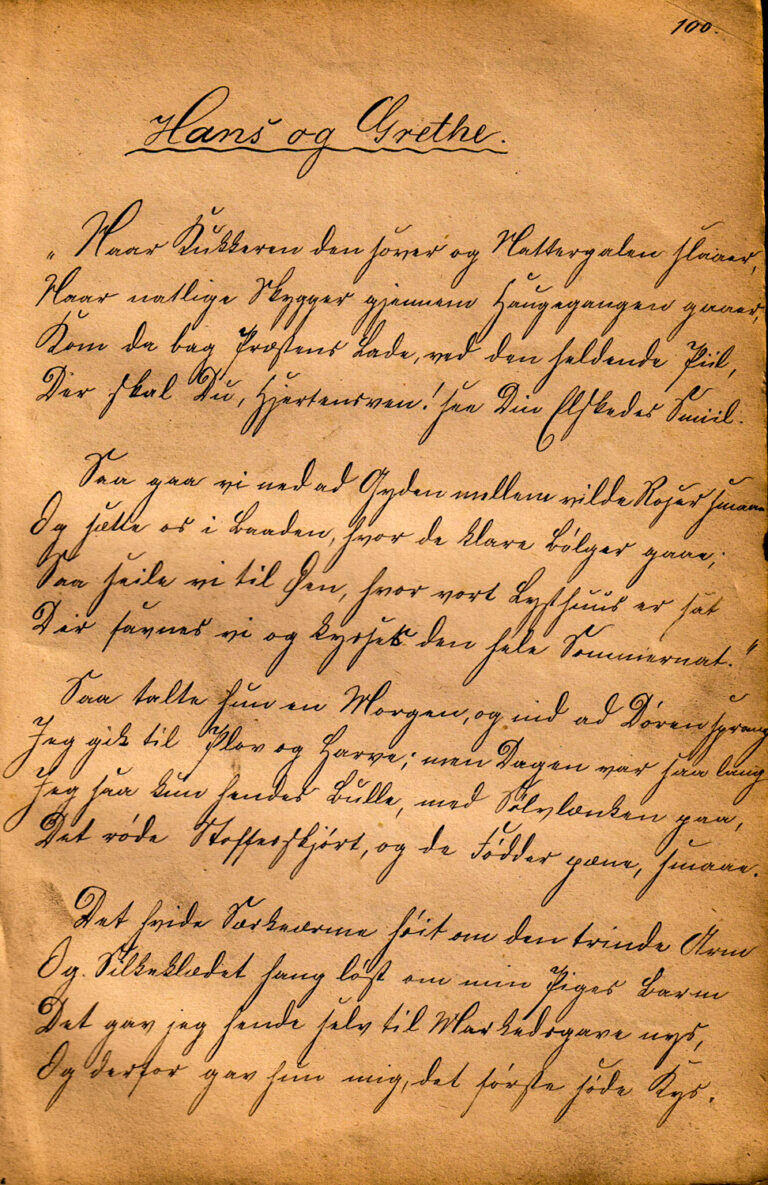 100.
Hans og Grethe.
„Naar Kukkeren den sover og Nattergalen slaaer,
Naar natlige Skygger gjennem Haugegangen gaaer,
Kom da bag Præstens Lade, ved den heldende Piil,
Der skal Du, Hjertensven! see Din Elskedes Smiil.
Saa gaa vi ned ad Gyden mellem vilde Roser smaae
Og sætte os i Baaden, hvor de klare Bølger gaae;
Saa seile vi til Øen, hvor vort Lysthuus er sat
Der favnes vi og kysses den hele Sommernat."
Saa talte hun en Morgen, og ind ad Døren sprang
Jeg gik til Plov og Harve; men Dagen var saa lang
Jeg saa kun hendes Bulle, med Sølvlænken paa,
Det røde Stoffesskjørt, og de Fødder pæne, smaae.
Det hvide Særkeærme høit om den trinde Arm
Og Silkeklædet hang løst om min Piges Barm
Det gav jeg hende selv til Markedsgave nys,
Og derfor gav hun mig, det første søde Kys.